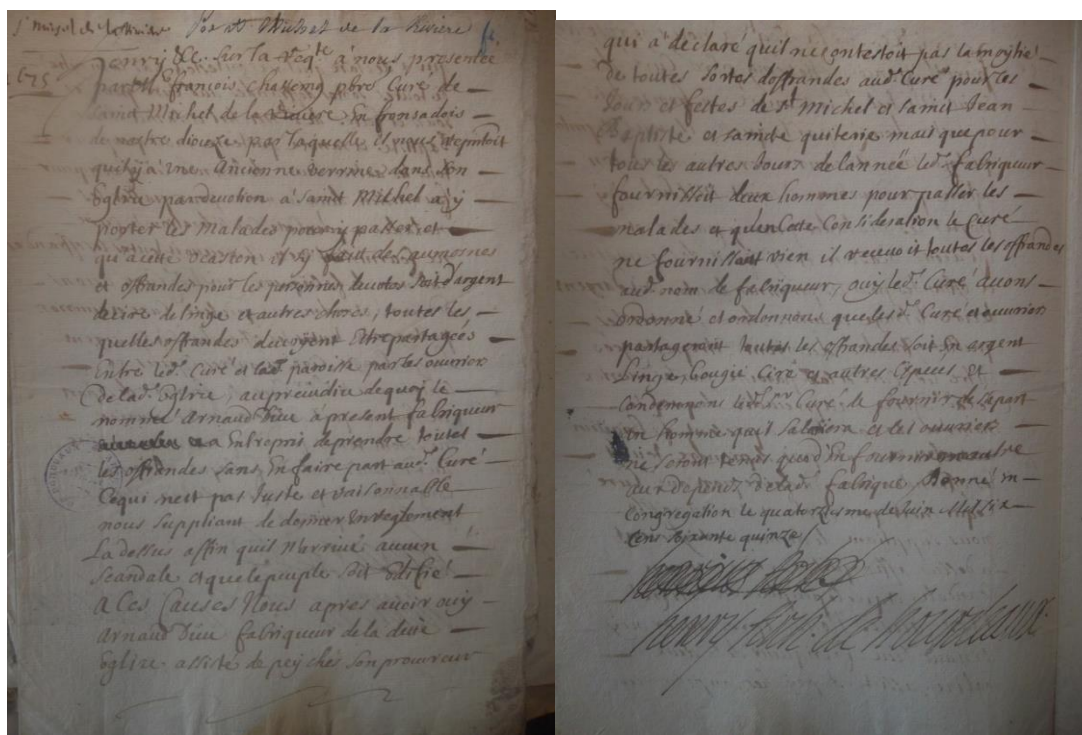 St Michel de la Riviere Por St Michel de la Riviere
1675
Henry &c. sur la Reqte à nous presentée
par Mr françois Chassaing pbre Curé de
saint Michel de la Riviere En fronsadois
de nostre dioceze par laquelle il nous Represintoit
quil y a une Ancienne Verrine dans son
Eglise par devotion à sainct Michel a y
porter les malades pour y passer, et
qu'à cette ocasion il sy fait des aumosnes
et offrandes pour les personnes devotes soit dargent
de cire de linge et autres choses, toutes les
quelles offrandes devroyent Etre partagées
Entre led. Curé et lad. paroisse par les ouvriers
De lad. Eglise, au prejudice de quoy le
nommé Arnaud Diue a present fabriqueur
a Entrepris de prendre toutes
les offrandes sans En faire part aud. Curé
Ce qui nest pas Juste et raisonnable
nous suppliant de donner Un reglement
La dessus affin quil n'arrive aucun
scandale et que le peuple soit édifié
A Ces Causes Nous apres avoir ouy
Arnaud Diue fabriqueur de la dite
Eglize assisté de peyches son procureur
qui a declaré quil ne contestoit pas la moytié
de toutes sortes doffrandes aud. Curé pour les
Jours et festes de st Michel et sainct Jean
Baptiste et saincte quiterie mais que pour
tous les autres Jours de lannée led. fabriqueur
fournissoit deux hommes pour passer les
malades et qu'en Cette Consideration le Curé
ne fournissant rien il recevoit toutes les offrandes
aud. nom de fabriqueur, ouy led. Curé avons
ordonné et ordonnons que lesd. Curé et ouvriers
partageront toutes les offrandes soit En argent
Linge, bougie Cire et autres Especes et
Condemnons led. Sr Curé de fournir de sa part
Un homme quil salariera et les ouvriers
ne seront tenus que d'En fournir un autre
aux depends de lad. fabrique, Donné en
Congregation le quatorziesme de Juin Mil six
Cens soixante quinze
henry arch. de bourdeaux